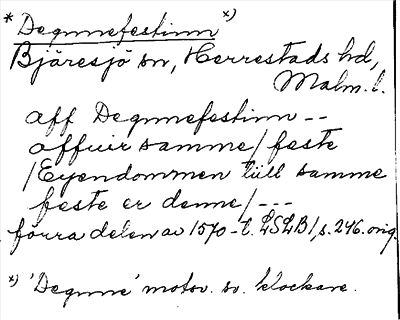 * Degnnefestinn x)
Bjäresjö sn, Herrestads hd,
Malm. l.
aff Degnnefestinn --
affuir samme/ feste
/Eyendommen till samme
feste er denne/ ---
förra delen av 1570-t. LSLB1, s. 246. orig.
x) 'Degnne' motsv. sv. klockare.